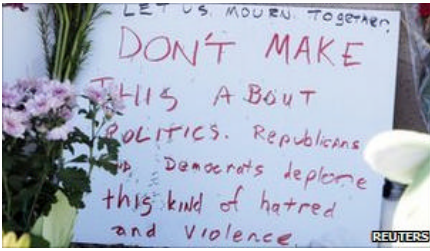 LET US. MOURN. Together.
DON'T MAKE
THIS ABOUT
POLITICS. Republicans
Democrats deplore
this kind of hatred
and violence
REUTERS